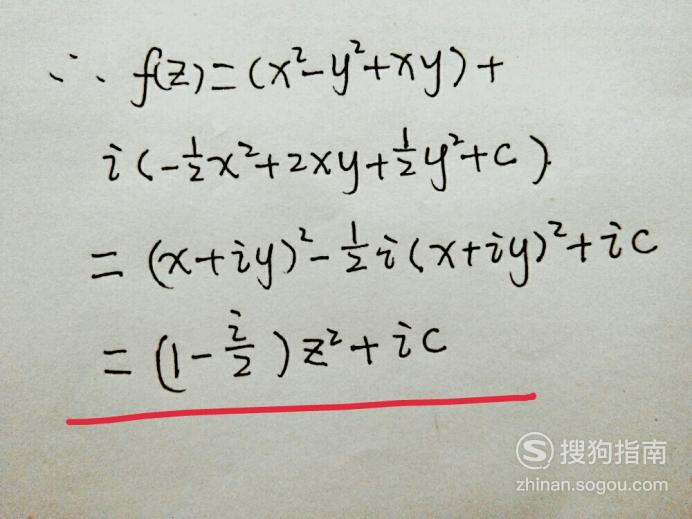 ∴ f(z)=(x²-y²+xy)+
i(-½x²+2xy+½y²+c).
=(x+iy)²-½i(x+iy)²+ic
=(1-i/2)z²+ic
搜狗指南
zhinan.sogou.com